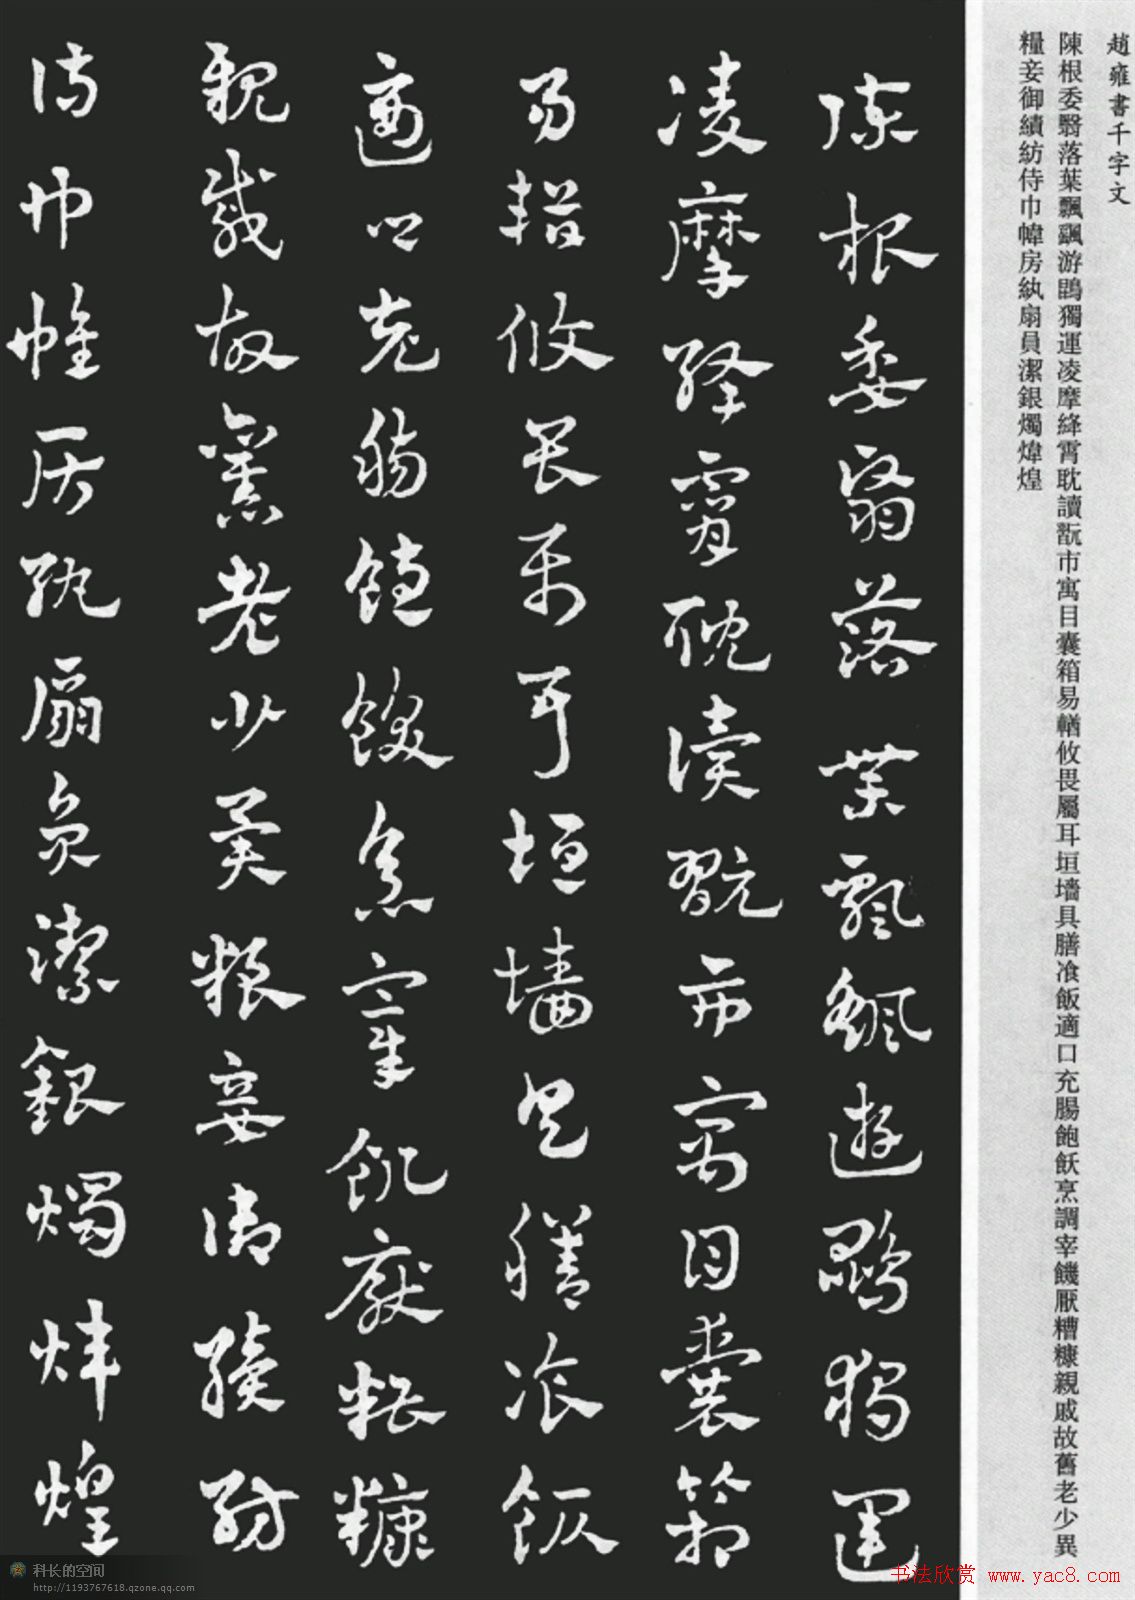 趙雍書千字文
陳根委翳落葉飄颻游鵾獨運凌摩絳霄耽讀翫市寓目囊箱易輶攸畏屬耳垣墻具膳飡飯適口充腸飽飫烹調宰饑厭糟糠親戚故舊老少異
糧妾御績紡侍巾幃房紈扇員潔銀燭煒煌
陳根委翳落葉飄颻遊鵾獨運
凌摩絳霄耽讀翫市寓目囊箱
易輶攸畏屬耳垣墻具膳飡飯
適口充腸飽飫烹宰飢厭糟糠
親戚故舊老少異糧妾御績紡
侍巾帷房紈扇員潔銀燭煒煌
科长的空间
http://1193767618.qzone.qq.com
书法欣赏 www.yac8.com